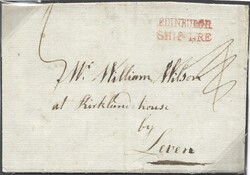 EDINBURGH
SHIP LRE
Mr. William Wilson
at Kirkland house
by
Leven